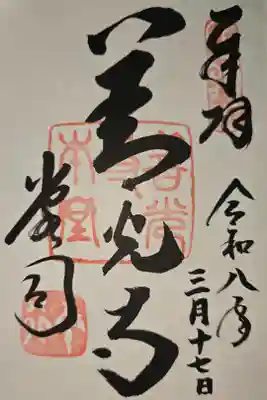 奉拝
令和八年
三月十七日
善光寺
堂司